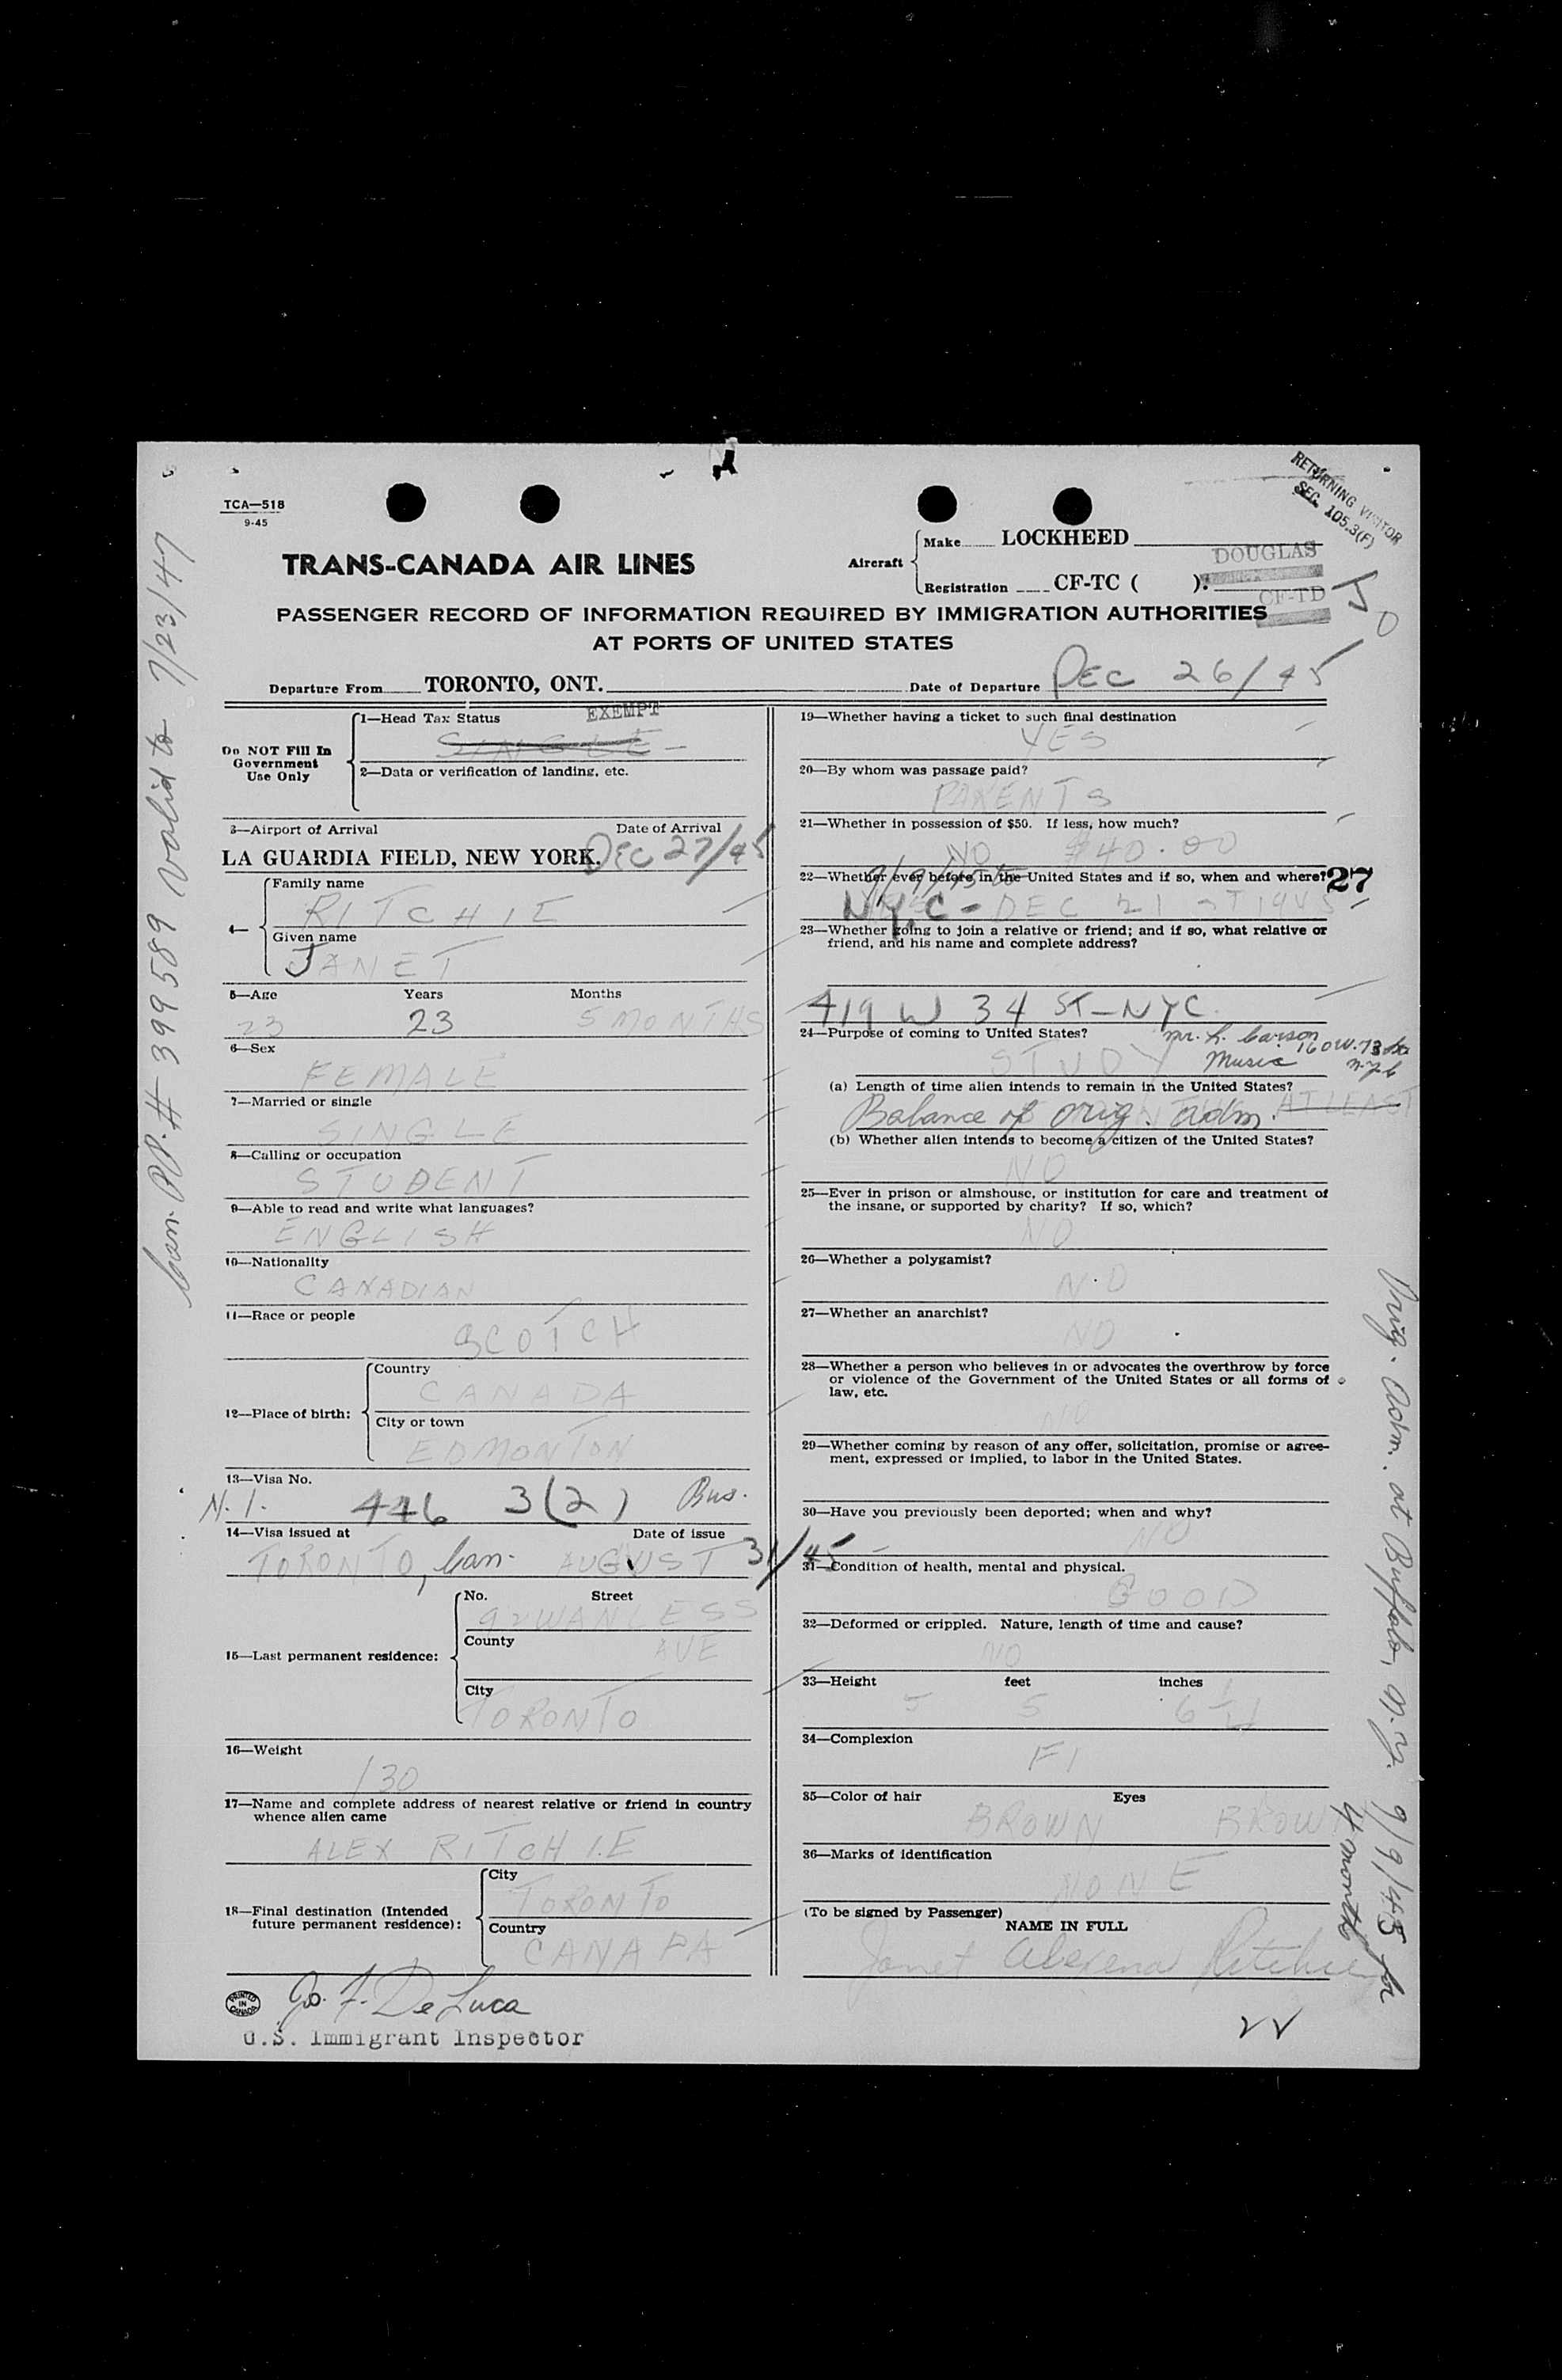 RETURNING VISITOR
SEC. 105.3(F)
TCA—518
9-45
TRANS-CANADA AIR LINES
Aircraft
Make LOCKHEED
DOUGLAS
Registration CF-TC ( ).
CF-TD
PASSENGER RECORD OF INFORMATION REQUIRED BY IMMIGRATION AUTHORITIES
AT PORTS OF UNITED STATES
Departure From TORONTO, ONT. Date of Departure DEC 26/45
Do NOT Fill In
Government
Use Only
1—Head Tax Status EXEMPT
SINGLE
2—Data or verification of landing, etc.
3—Airport of Arrival Date of Arrival
LA GUARDIA FIELD, NEW YORK. DEC 27/45
4—
Family name
RITCHIE
Given name
JANET
5—Age Years Months
23 23 5 MONTHS
6—Sex
FEMALE
7—Married or single
SINGLE
8—Calling or occupation
STUDENT
9—Able to read and write what languages?
ENGLISH
10—Nationality
CANADIAN
11—Race or people
SCOTCH
12—Place of birth:
Country
CANADA
City or town
EDMONTON
13—Visa No.
N.I. 446 3(2) Bus.
14—Visa issued at Date of issue
TORONTO, Can. AUGUST 31/45
15—Last permanent residence:
No. Street
92 WANLESS
County AVE
City
TORONTO
16—Weight
130
17—Name and complete address of nearest relative or friend in country
whence alien came
ALEX RITCHIE
18—Final destination (Intended
future permanent residence):
City
TORONTO
Country
CANADA
19—Whether having a ticket to such final destination
YES
20—By whom was passage paid?
PARENTS
21—Whether in possession of $50. If less, how much?
NO $40.00
22—Whether ever before in the United States and if so, when and where?
27
9/9/45 to
N.Y.C - DEC 21 ST 1945
23—Whether going to join a relative or friend; and if so, what relative or
friend, and his name and complete address?
419 W 34 ST—NYC.
24—Purpose of coming to United States?
Mr. L. Carson
160 W. 73 St.
N.Y.C
STUDY Music
(a) Length of time alien intends to remain in the United States?
Balance of orig. adm. AT LEAST
(b) Whether alien intends to become a citizen of the United States?
NO
25—Ever in prison or almshouse, or institution for care and treatment of
the insane, or supported by charity? If so, which?
NO
26—Whether a polygamist?
NO
27—Whether an anarchist?
NO
28—Whether a person who believes in or advocates the overthrow by force
or violence of the Government of the United States or all forms of
law, etc.
NO
29—Whether coming by reason of any offer, solicitation, promise or agree-
ment, expressed or implied, to labor in the United States.
30—Have you previously been deported; when and why?
NO
31—Condition of health, mental and physical.
GOOD
32—Deformed or crippled. Nature, length of time and cause?
NO
33—Height feet inches
5 5 6
34—Complexion
35—Color of hair Eyes
BROWN BROWN
36—Marks of identification
NONE
(To be signed by Passenger)
NAME IN FULL
Janet Ritchie
PRINTED IN CANADA
Jo. F. De Luca
U.S. Immigrant Inspector
Can. PP. # 399589 valid to 7/23/47
Orig. adm. at Buffalo, N.Y. 9/9/45 for
4 months